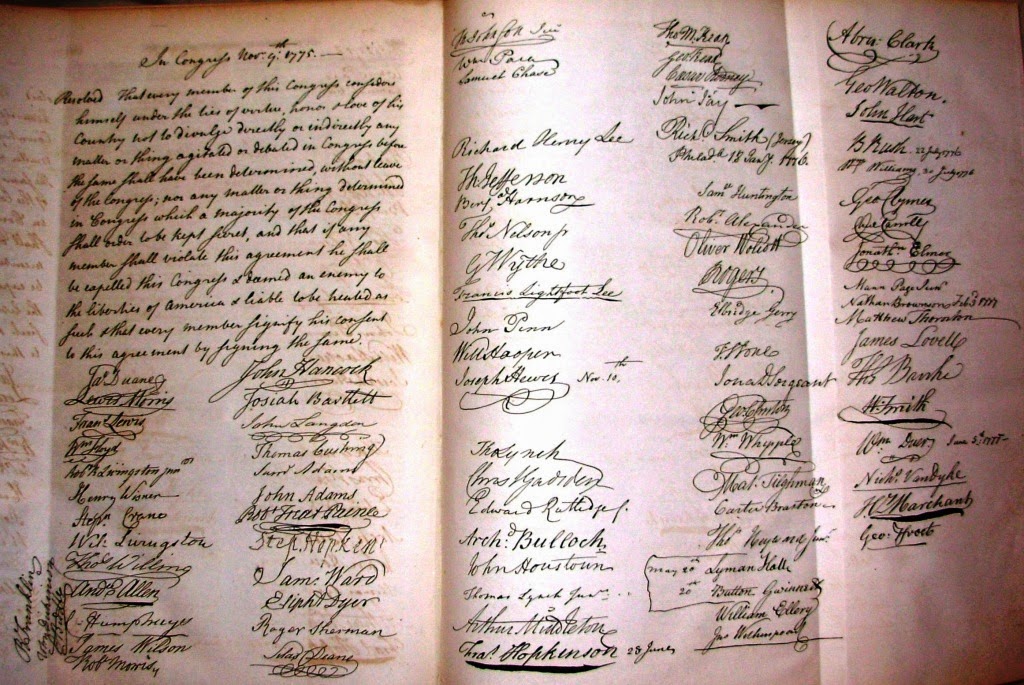 In Congress Nov. 9th 1775.
Resolved That every member of this Congress considers
himself under the ties of virtue, honor & love of his
Country not to divulge directly or indirectly any
matter or thing agitated or debated in Congress before
the same shall have been determined, without leave
of the Congress; nor any matter or thing determined
in Congress which a majority of the Congress
shall order to be kept secret, and that if any
member shall violate this agreement he shall
be expelled this Congress & deemed an enemy to
the liberties of America & liable to be treated as
such & that every member signify his consent
to this agreement by signing the same.
Jas. Duane
Lewis Morris
Frans Lewis
Wm Floyd
Robt R Livingston junr
Henry Wisner
Step. Crane
Wil. Livingston
Thos Willing
Andw Allen
Humphreys
James Wilson
Robt Morris
B Franklin
John Hancock
Josiah Bartlett
John Langdon
Thomas Cushing
Saml Adams
John Adams
Robt Treat Paine
Step. Hopkins
Sam: Ward
Elipht Dyer
Roger Sherman
Silas Deane
Johnson Junr
Wm Paca
Samuel Chase
Richard Henry Lee
Th Jefferson
Benj Harrison
Thos Nelson jr
G Wythe
Francis Lightfoot Lee
John Penn
Will Hooper
Joseph Hewes Nov. 10th
Tho Lynch
Christ Gadsden
E Rutledge
Archd Bulloch
John Houstoun
Thomas Lynch Junr
Arthur Middleton
Fras Hopkinson 28 June
Tho M:Kean
Geo Read
Caesar Rodney
John Jay
Richd Smith (Jersey)
Philada 18 Jany 1776
Saml Huntington
Robt Alexander
Oliver Wolcott
Rogers
Elbridge Gerry
T Stone
Jonad Sergeant
Geo Clinton
Wm Whipple
Mat. Tilghman
Carter Braxton
Thos Heyward Junr
may 20th Lyman Hall
20th Button Gwinnett
William Ellery
Jno Witherspoon
Abra Clark
Geo Walton.
John Hart
B Rush 22 July 1776
Wm Williams, 28 July 1776
Geo Clymer
Chas Carroll
Jonathn Elmer
Mann Page Junr
Nathan Brownson Feb 3 1777
Matthew Thornton
James Lovell
Thos Burke
Smith
Wm Duer
Nichs VanDyke
Hy Marchant
Geo: Frost